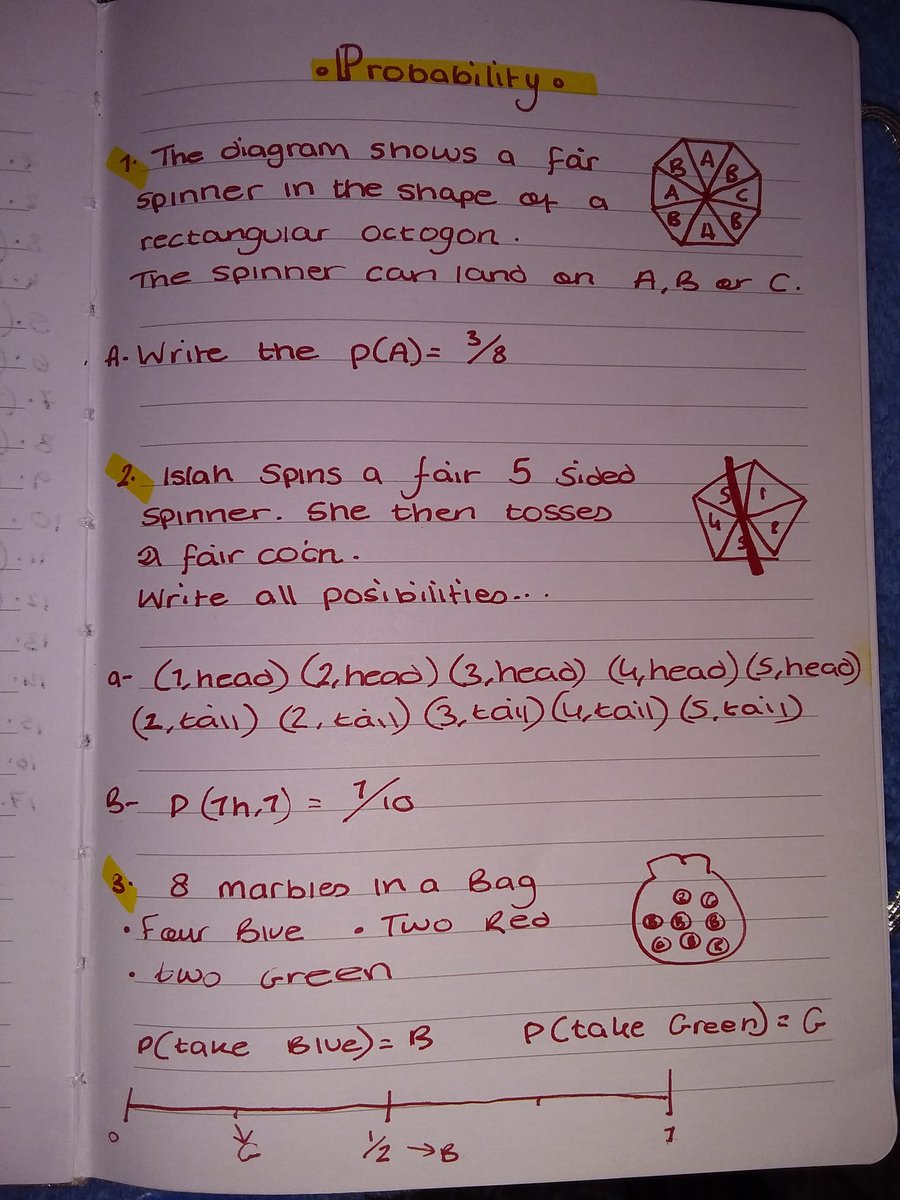 . Probability .
1. The diagram shows a fair
spinner in the shape of a
rectangular octogon.
The spinner can land on A, B or C.
B A B
A C
B A B
A. Write the P(A) = 3/8
2. Islah spins a fair 5 sided
spinner. She then tosses
a fair coin.
Write all posibilities...
5 1
4 2
3
a- (1,head) (2,head) (3,head) (4,head) (5,head)
(2,tail) (2,tail) (3,tail) (4,tail) (5,tail)
B- P(1h,1) = 1/10
3. 8 marbles in a Bag
• Four Blue • Two Red
• two Green
P(take Blue) = B P(take Green) = G
0 G 1/2 → B 1